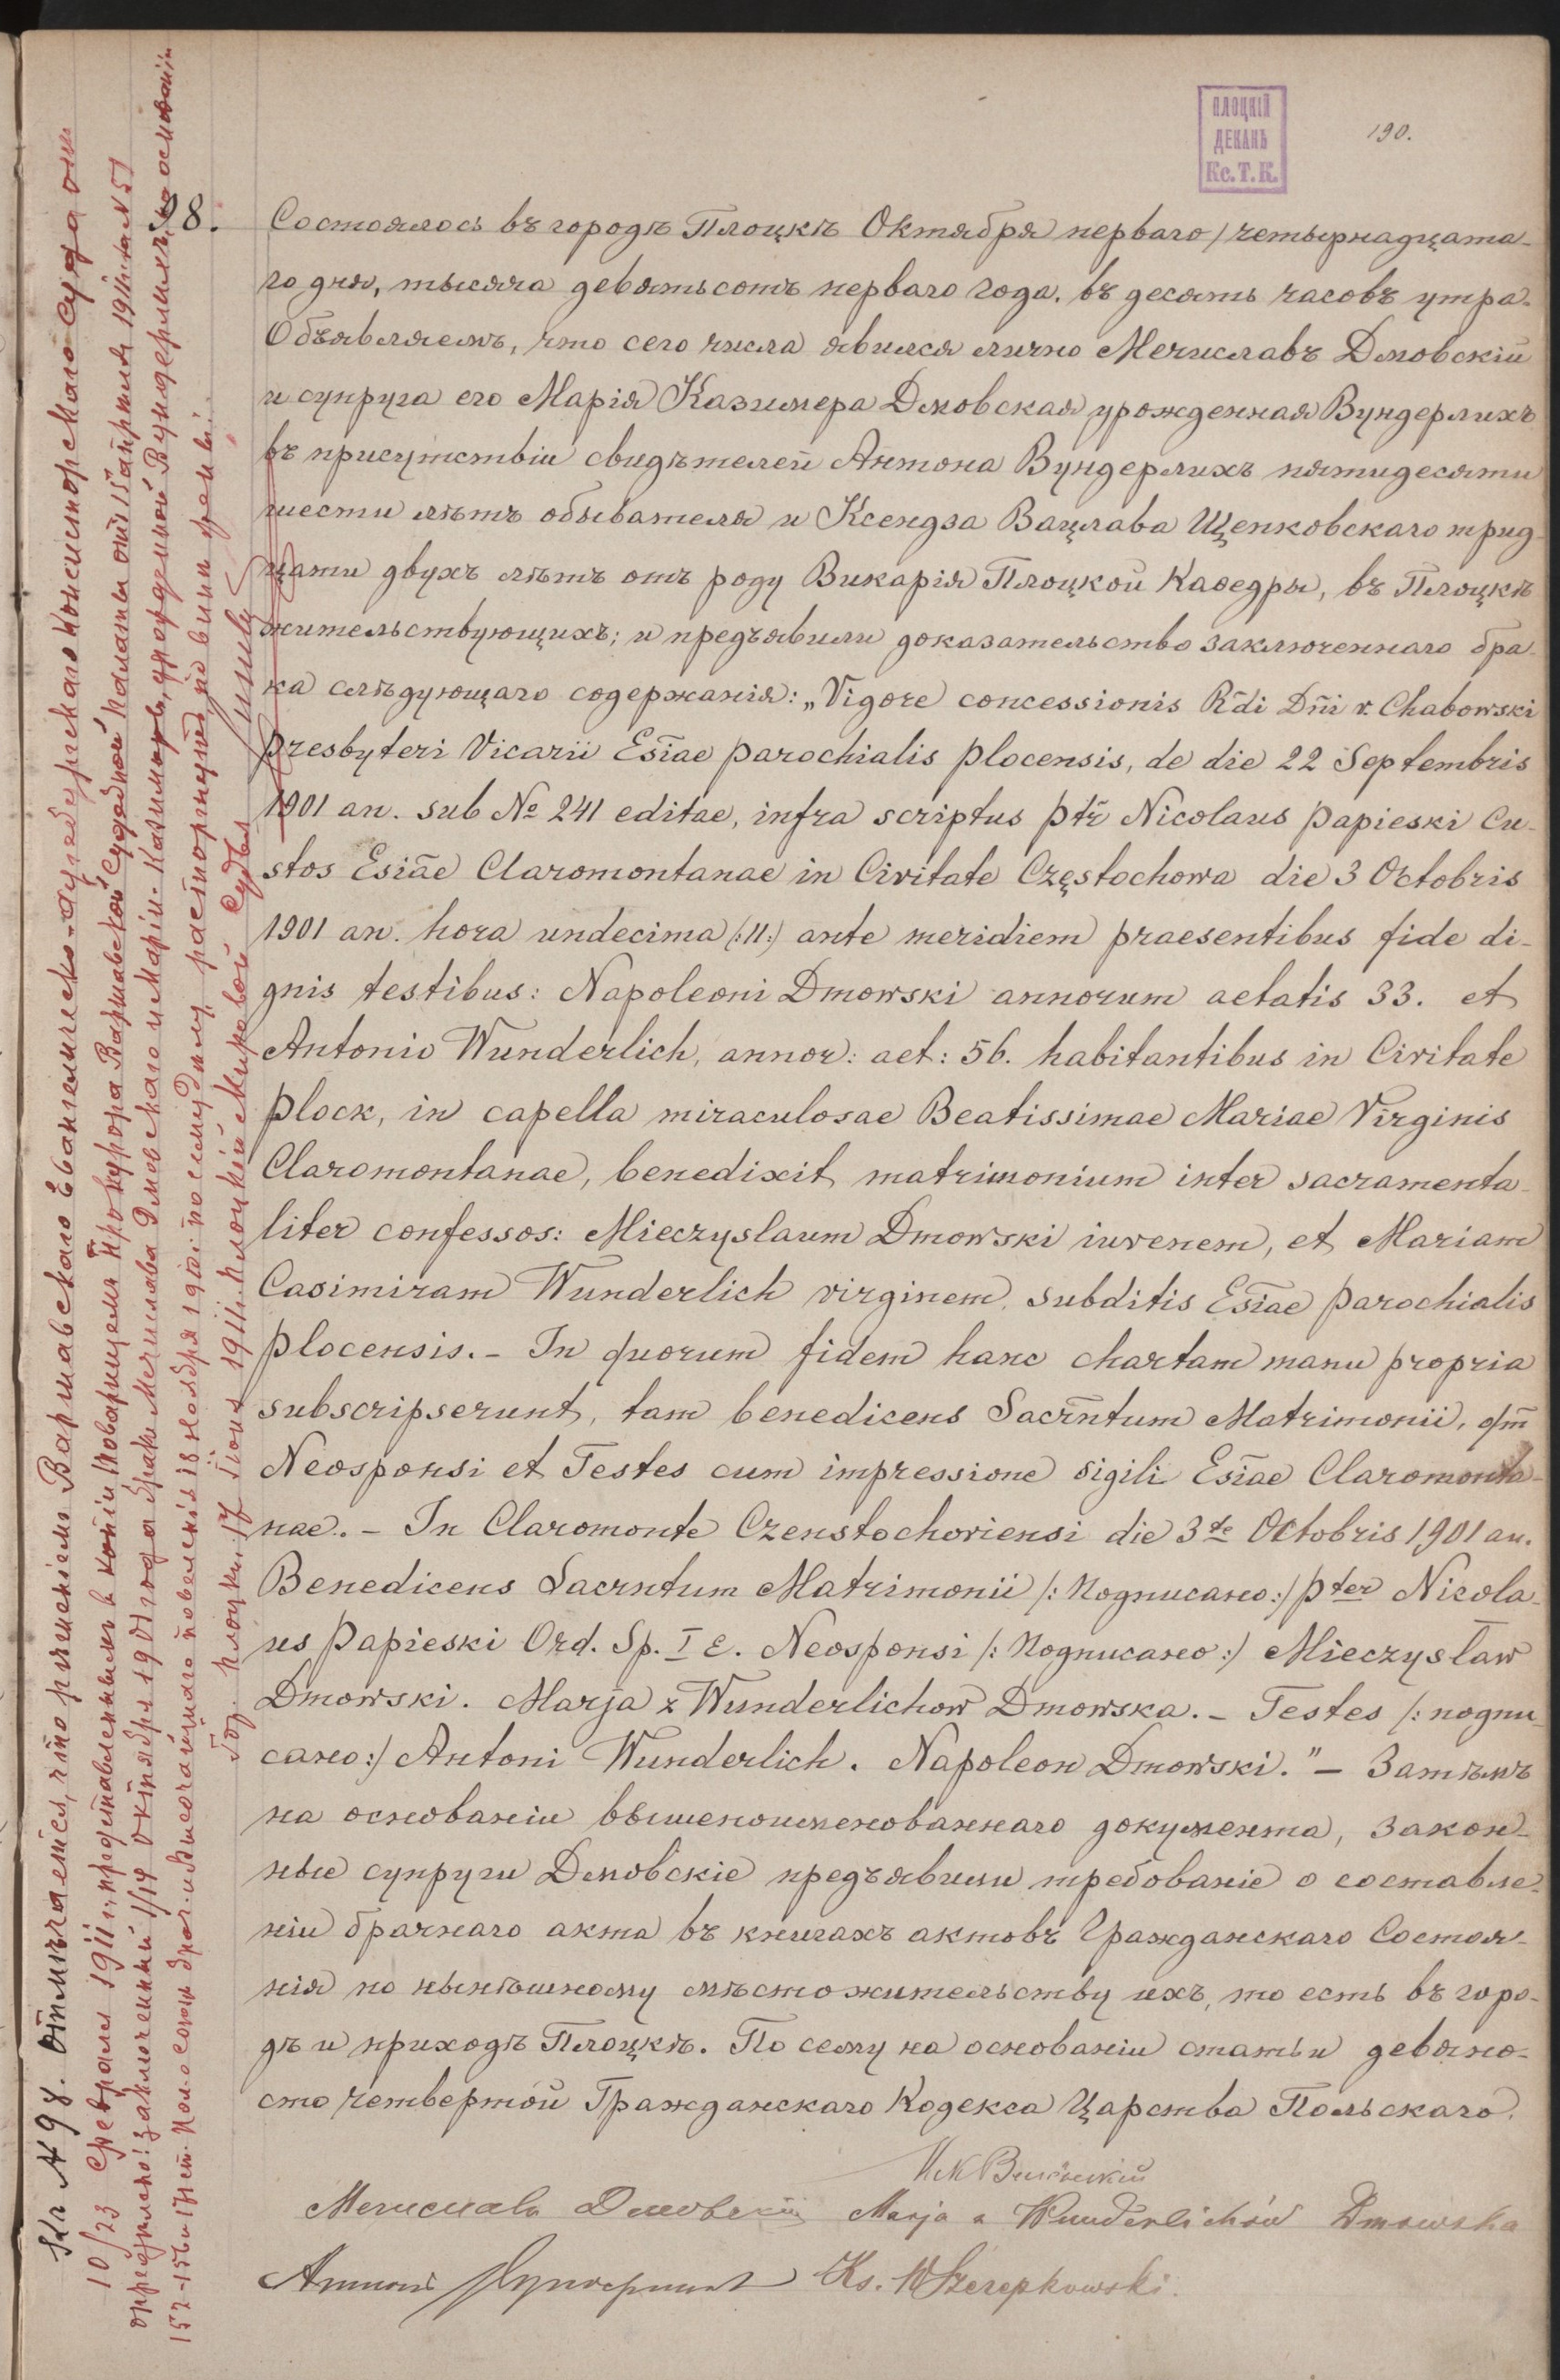 ПЛОЦКІЙ
ДЕКАНЪ
Кс. Т. К.
190.
98.
Состоялось въ городѣ Плоцкѣ Октября перваго / четырнадцата-
го дня, тысяча девятьсотъ перваго года, въ десять часовъ утра.
Объявляемъ, что сего числа явился лично Мечиславъ Дмовскій
и супруга его Марія Казимера Дмовская урожденная Вундерлихъ
въ присутствіи свидѣтелей Антона Вундерлихъ пятидесяти
шести лѣтъ обывателя и Ксендза Вацлава Щепковскаго трид-
цати двухъ лѣтъ отъ роду Викарія Плоцкой Каѳедры, въ Плоцкѣ
жительствующихъ; и предъявили доказательство заключеннаго бра-
ка слѣдующаго содержанія: „Vigore concessionis Rdi Dni v. Chabowski
presbyteri Vicarii Esiae parochialis plocensis, de die 22 Septembris
1901 an. sub № 241 editae, infra scriptus ptr Nicolaus Papieski Cu-
stos Esiae Claromontanae in Civitate Częstochowa die 3 Octobris
1901 an. hora undecima /:11:/ ante meridiem praesentibus fide di-
gnis testibus: Napoleoni Dmowski annorum aetatis 33. et
Antonio Wunderlich, annor: aet: 56. habitantibus in Civitate
Plock, in capella miraculosae Beatissimae Mariae Virginis
Claromontanae, benedixit matrimonium inter sacramenta-
liter confessos: Mieczyslaum Dmowski iuvenem, et Mariam
Casimiram Wunderlich virginem, subditis Esiae parochialis
plocensis. - In quorum fidem hanc chartam manu propria
subscripserunt, tam benedicens Sacrntum Matrimonii, qm
Neosponsi et Testes cum impressione sigili Esiae Claromonta-
nae. - In Claromonte Czenstochoviensi die 3te Octobris 1901 an.
Benedicens Sacrntum Matrimonii /: Подписано :/ pter Nicola-
us Papieski Ord. Sp. I E. Neosponsi /: Подписано :/ Mieczysław
Dmowski. Marja z Wunderlichow Dmowska. - Testes /: подпи-
сано :/ Antoni Wunderlich. Napoleon Dmowski." — Затѣмъ
на основаніи вышепоименованнаго документа, закон-
ные супруги Дмовскіе предъявили требованіе о составле-
ніи брачнаго акта въ книгахъ актовъ Гражданскаго Состоя-
нія по нынѣшному мѣстожительству ихъ, то есть въ горо-
дѣ и приходѣ Плоцкѣ. По сему на основаніи статьи девяно-
сто четвертой Гражданскаго Кодекса Царства Польскаго.
Мечиславъ Дмовскій Marja z Wunderlichów Dmowska
Антонъ Вундерлихъ Ks. W Szczepkowski
Къ № 98. Отмѣчается, что рѣшеніемъ Варшавскаго Евангелическо-Аугсбургскаго Консисторскаго Суда отъ
10/23 Февраля 1911 г., представленнымъ въ копіи Товарищемъ Прокурора Варшавской Судебной Палаты отъ Апрѣля 1911 г. за №
опредѣлено: заключенный 1/14 Октября 1901 года бракъ Мечислава Дмовскаго и Маріи-Казимеры, урожденной Вундерлихъ, на основаніи
152-156 и 171 ст. Пол. о Союзѣ Брач. и Высочайшаго повелѣнія 18 Ноября по расторгнутъ по винѣ
Гор. Плоцкъ, 17 Іюня 1911 г. Плоцкій Мировой Судья